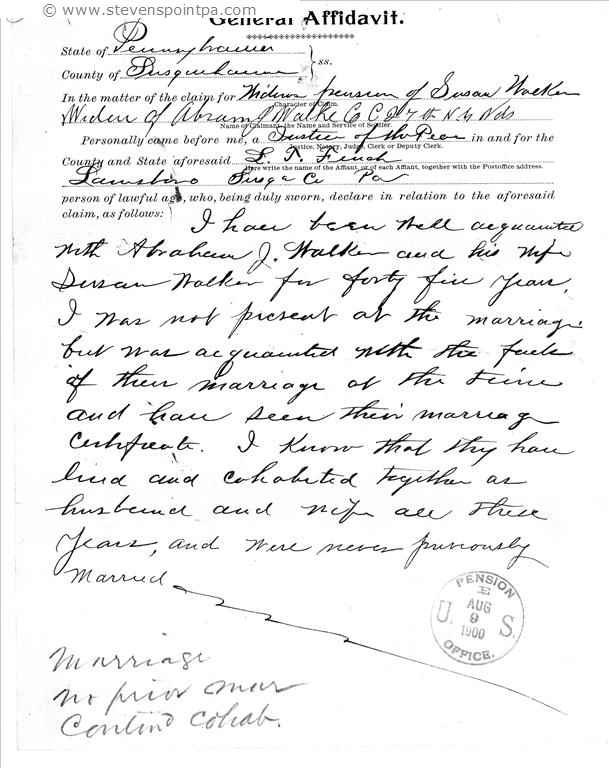 © www.stevenspointpa.com
General Affidavit.
State of Pennsylvania
County of Susquehanna } ss.
In the matter of the claim for Widows pension of Susan Walker
Character of Claim.
Widow of Abram J Walke Co C 27th N Y Vols
Name of Claimant, the Name and Service of Soldier.
Personally came before me, a Justice of the Peace in and for the
Justice, Notary, Judge, Clerk or Deputy Clerk.
County and State aforesaid L. T. Finch
Here write the name of the Affiant, or of each Affiant, together with the Postoffice address.
Lawsboro Susq a Co Pa
person of lawful age, who, being duly sworn, declare in relation to the aforesaid
claim, as follows: I have been well acquainted
with Abraham J. Walker and his wife
Susan Walker for forty five years.
I was not present at the marriage
but was acquainted with the fact
of their marriage at the time
and have seen their marriage
Certificate. I Know that they have
lived and cohabited together as
husband and wife all these
years, and were never previously
Married
PENSION
U. S.
E
AUG
9
1900
OFFICE.
Marriage
no prior mar
Contind Cohab.